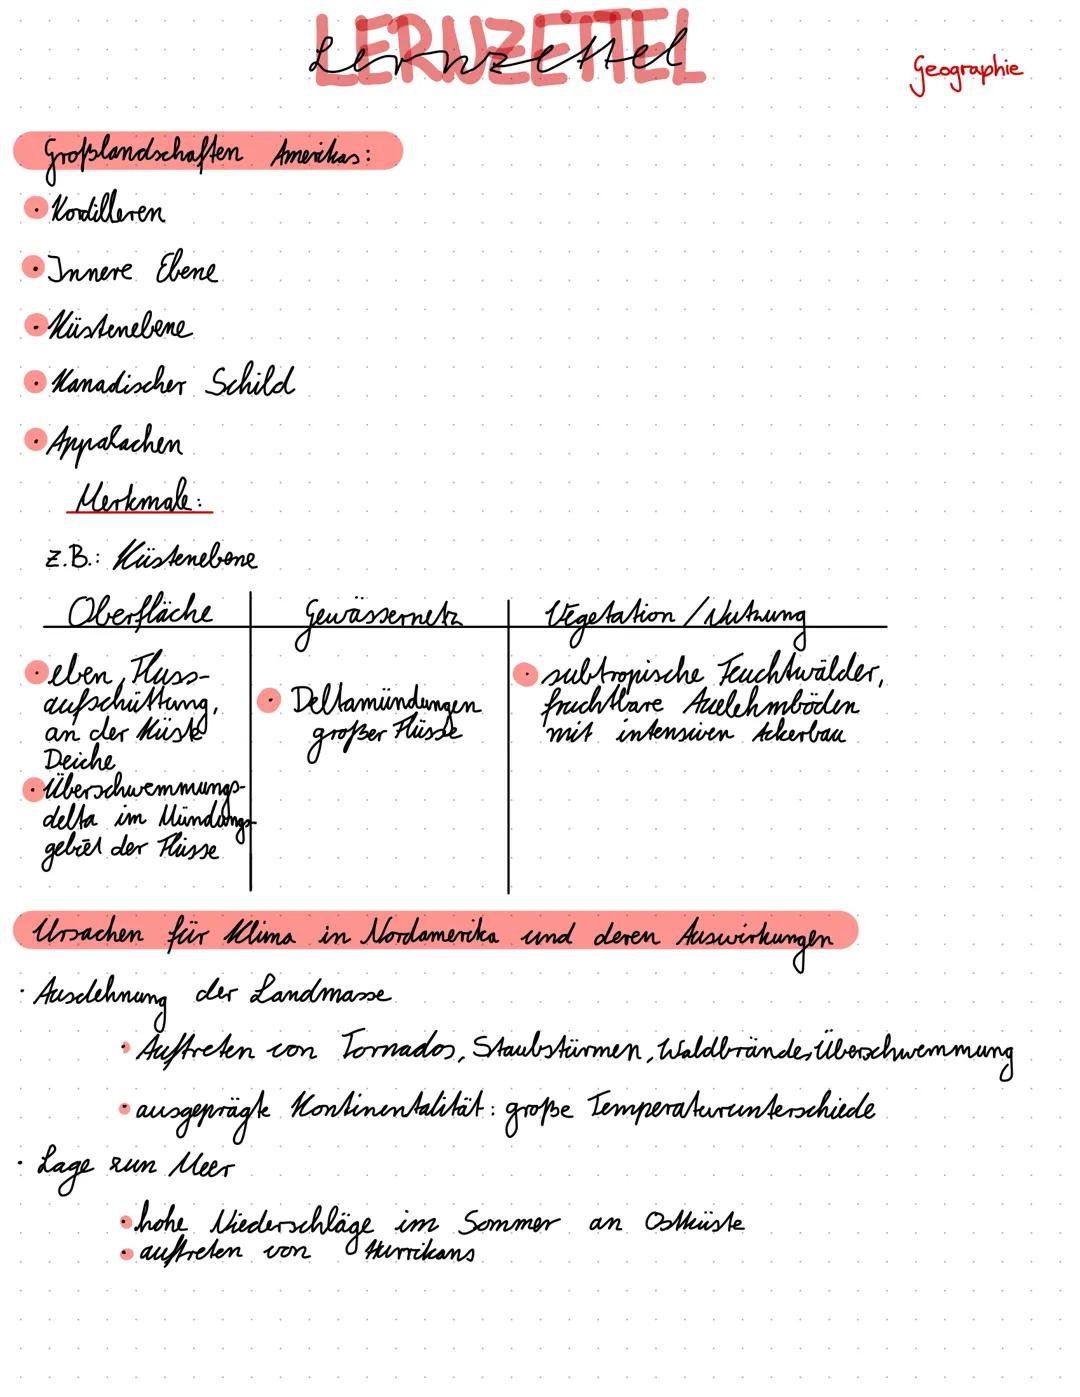 LERNZETTEL
Lernzettel
Geographie
Großlandschaften Amerikas:
• Kordilleren
• Innere Ebene
• Küstenebene
• Kanadischer Schild
• Appalachen
Merkmale:
z.B.: Küstenebene
Oberfläche
• eben, Fluss-
aufschüttung,
an der Küste
Deiche
• Überschwemmungs-
delta im Mündungs-
gebiet der Flüsse
Gewässernetz
• Deltamündungen
großer Flüsse
Vegetation / Nutzung
• subtropische Feuchtwälder,
fruchtbare Auelehmböden
mit intensiven Ackerbau
Ursachen für Klima in Nordamerika und deren Auswirkungen
· Ausdehnung der Landmasse
• Auftreten von Tornados, Staubstürmen, Waldbrände, Überschwemmung
• ausgeprägte Kontinentalität: große Temperaturunterschiede
· Lage zun Meer
• hohe Niederschläge im Sommer an Ostküste
• auftreten von Hurrikans